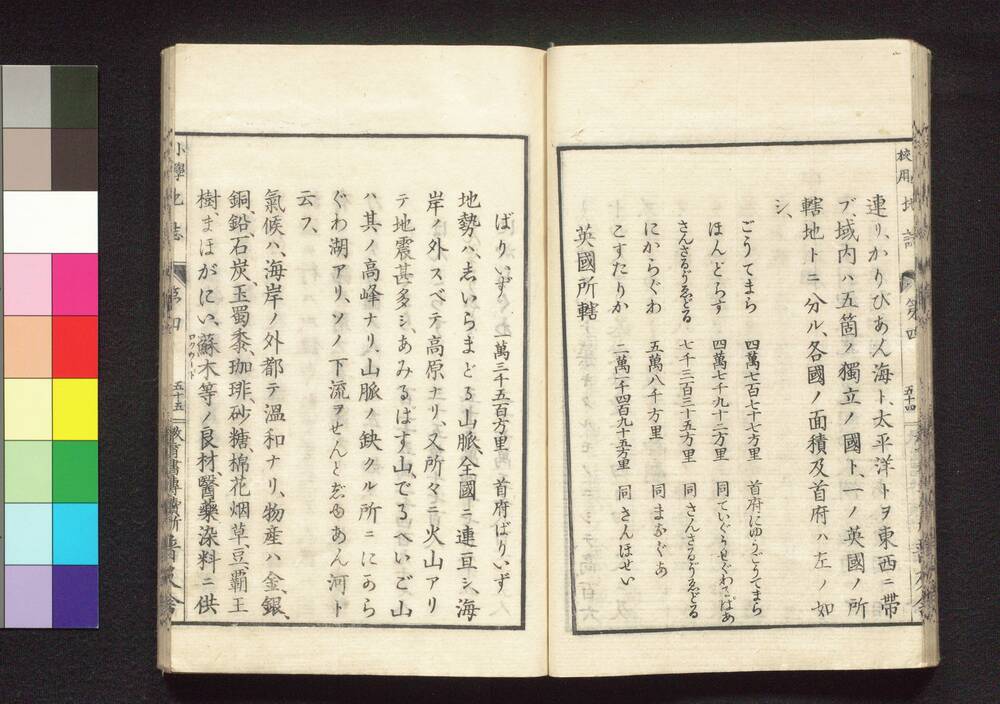 連リ、かりびあん海ト、太平洋トヲ東西ニ帶
ブ、域内ハ五箇ノ獨立ノ國ト、一ノ英國ノ所
轄地トニ分ル、各國ノ面積及首府ハ左ノ如
シ、
ごうてまら 四萬七百七十七方里 首府にゆうごうてまら
ほんどらす 四萬七千九十二方里 同
さんさるう゛ゑどる 七千三百三十五方里 同さんさるう゛ゑどる
にからぐわ 五萬八千方里 同まなぐあ
こすたりか 二萬一千四百九十五方里 同さんほせい
英國所轄
ばりいず 萬三千五百方里 首府ばりいず
地勢ハ、志いらまどる山脈、全國ニ連亘シ、海
岸ノ外スベテ高原ナリ、又所々ニ火山アリ
テ地震甚多シ、あみるぱす山、でるへいご山
ハ其ノ高峰ナリ、山脈ノ缺クル所ニにから
ぐわ湖アリ、ソノ下流ヲせんとじゆあん河ト
云フ、
氣候ハ、海岸ノ外都テ溫和ナリ、物産ハ、金、銀、
銅、鉛、石炭、玉蜀黍、珈琲、砂糖、棉花、烟草、豆、覇王
樹、まほがにい、蘇木等ノ良材、醫藥染料ニ供
ロクウード
校用
地誌
第四
五十四
小學地誌
第四
五十五
教育書專賣所
普及舍